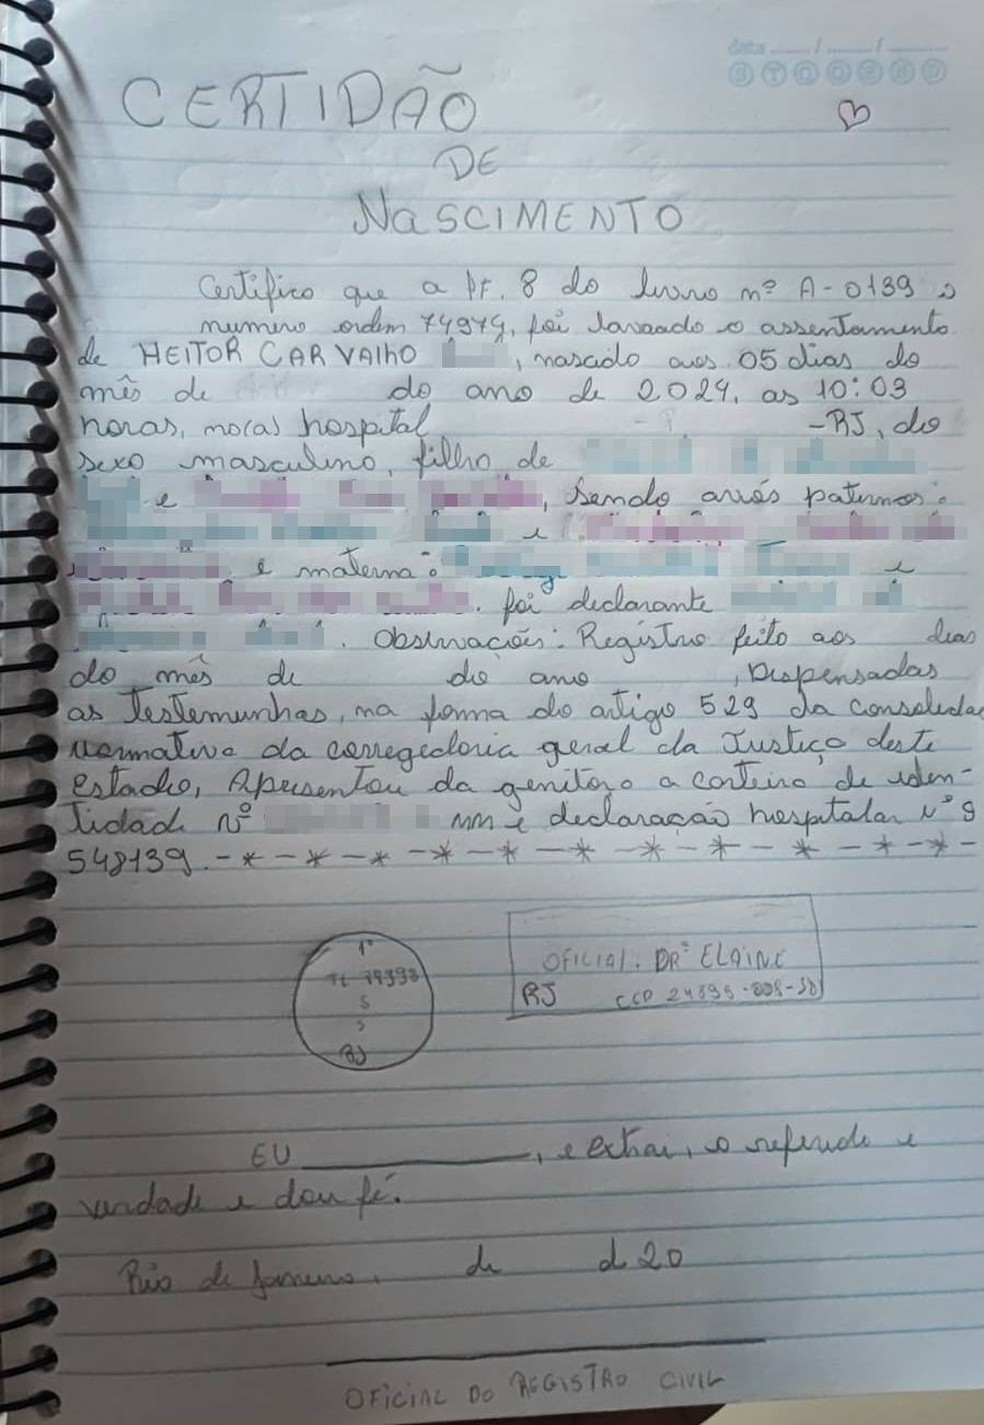 data ___/___/___
S T Q Q S S D
CERTIDÃO
DE
NaSCIMENTO
Certifico que a Pf. 8 do livro nº A-0139 o
numero ordem 74974, foi lavrado o assentamento
de HEITOR CARVAlHO , nascido aos 05 dias do
mês de do ano de 2024, as 10:03
horas, no(a) hospital -RJ, do
sexo masculino, filho de
e , sendo avós paternos:
e
e materna: e
. foi declarante
. Observações: Registro feito aos dias
do mês de do ano , Dispensadas
as Testemunhas, na forma do artigo 529 da consolidac
normativa da corregedoria geral da Justiça deste
estado, Apresentou da genitora a carteira de iden-
tidade nº e declaração hospitalar Nº 9
548139. - * - * - * - * - * - * - * - * - * - * - * -
1º
79393
S
S
RJ
OFICIAL: DRª ELAINE
RJ
EU ___, e extrai, o referido e
verdade e dou fé.
Rio de Janeiro, de d 20
OFICIAL DO REGISTRO CIVIL